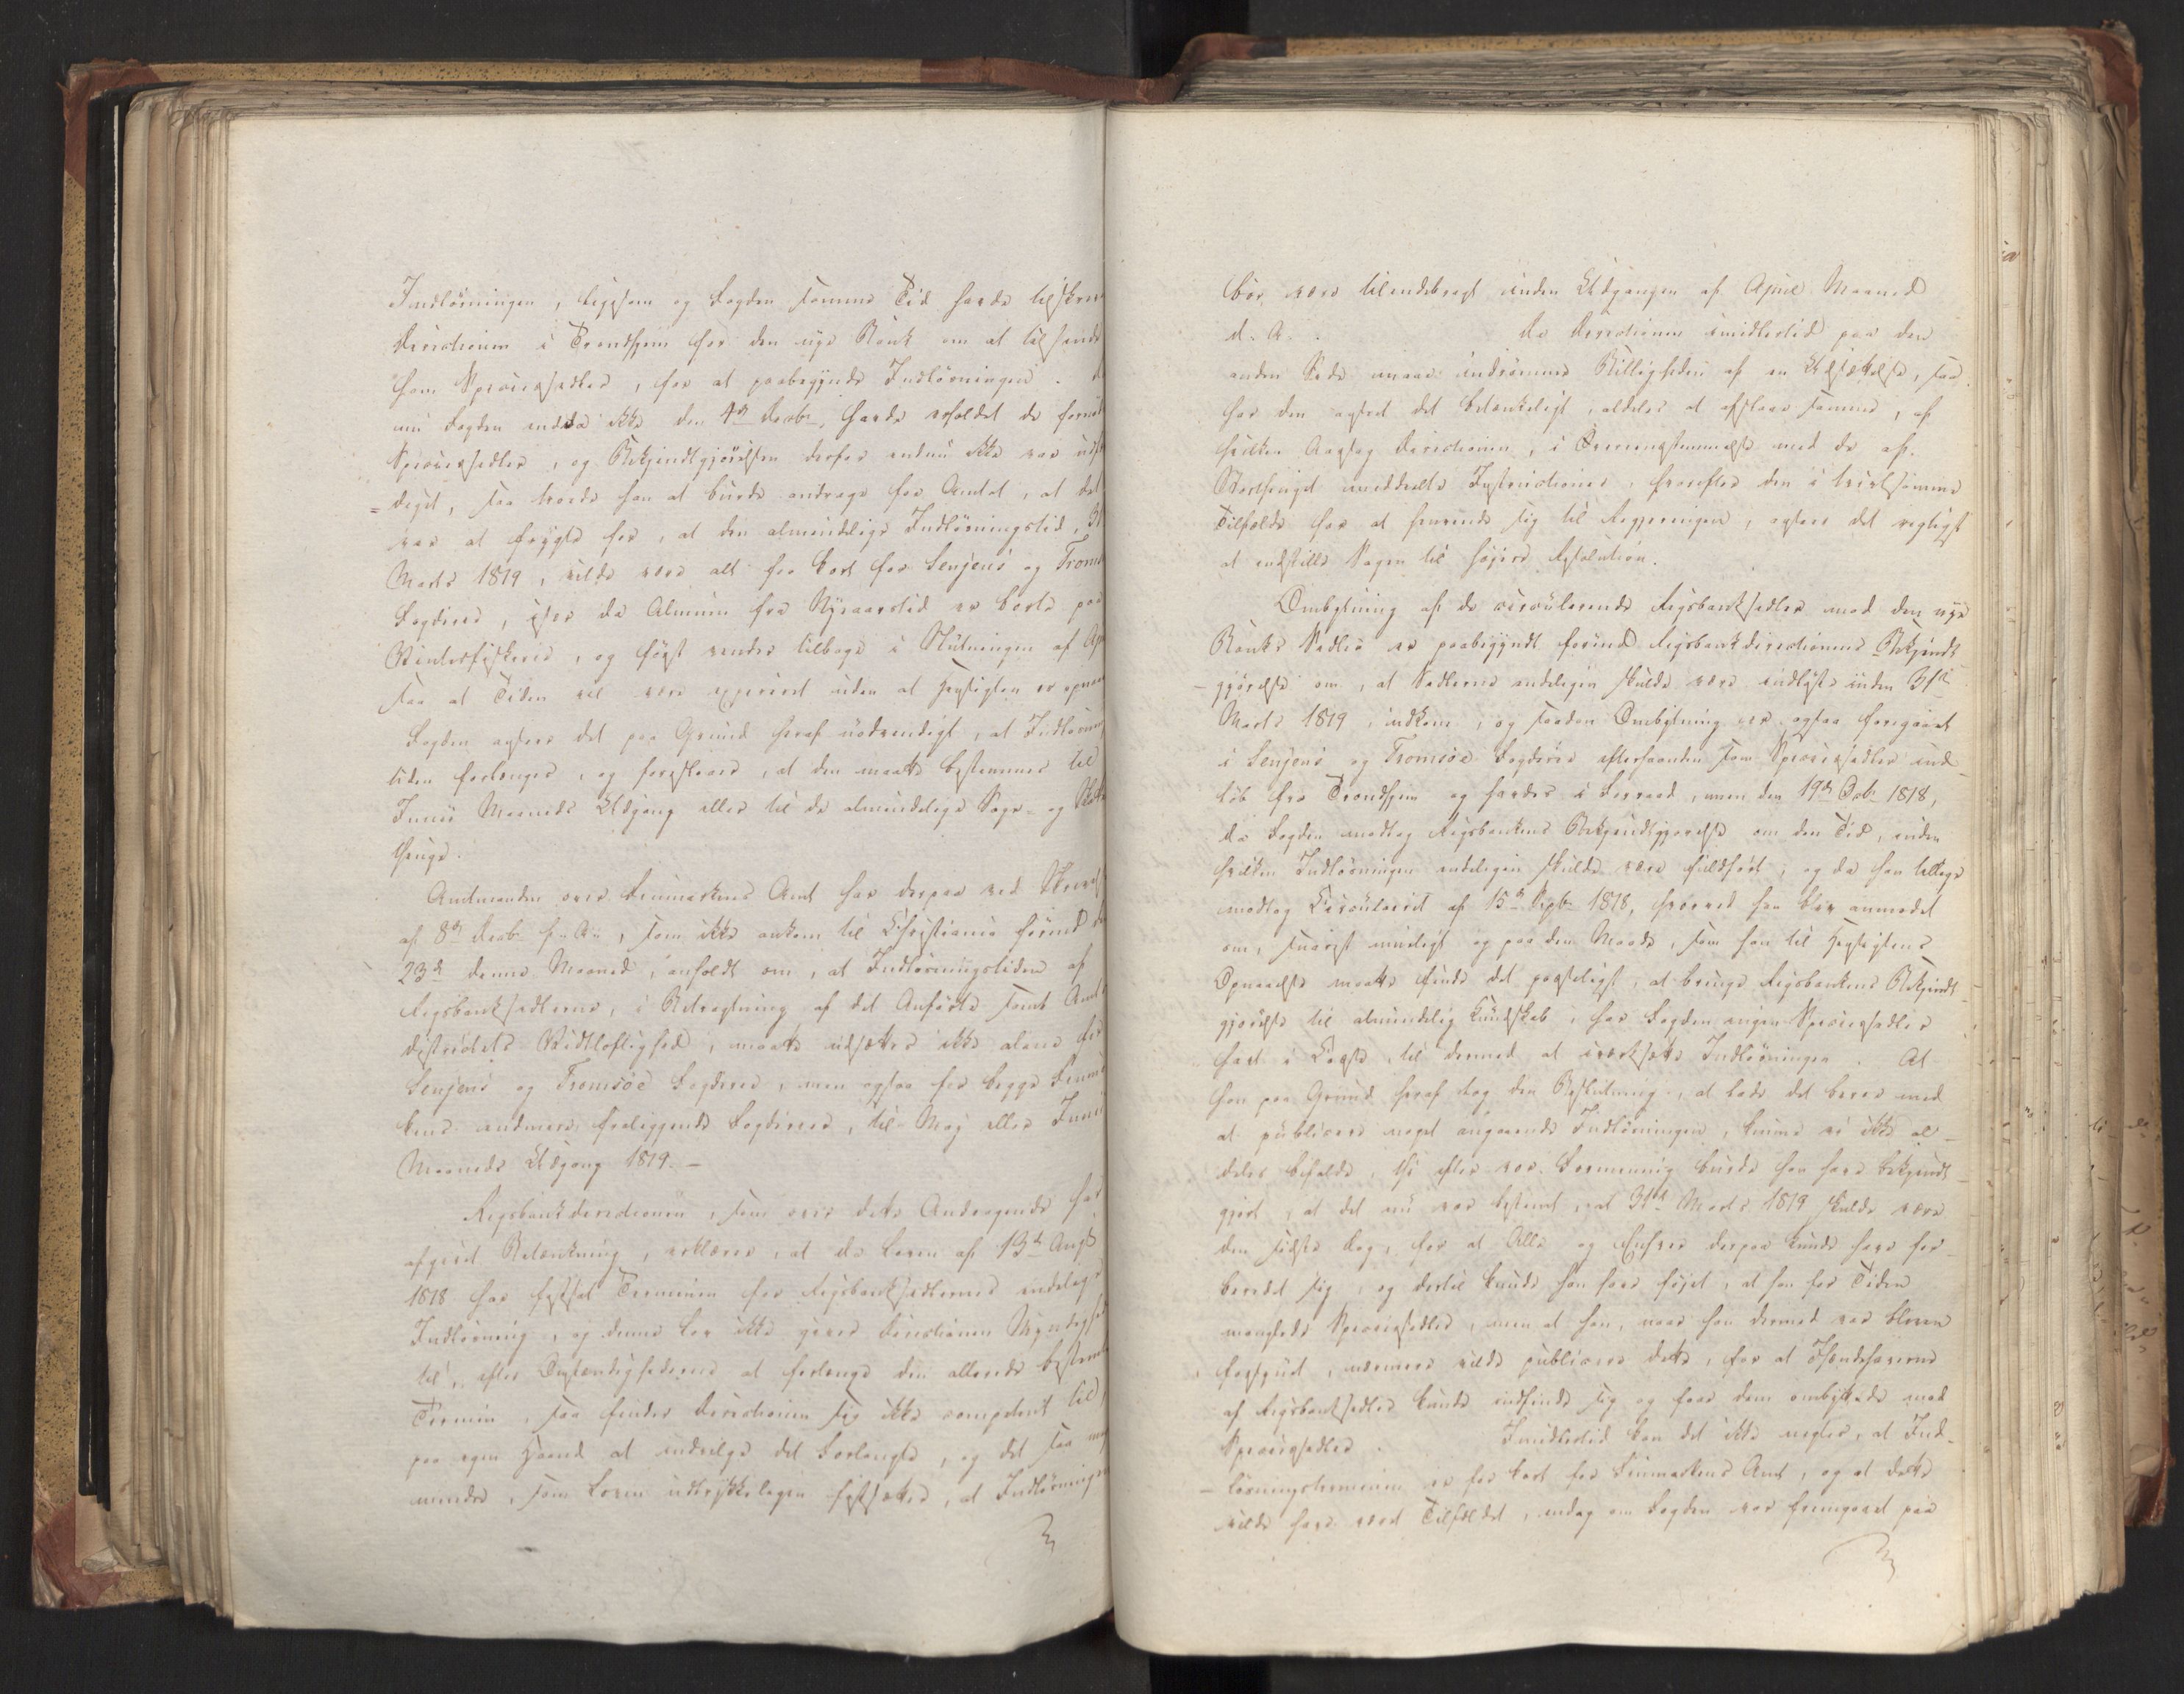 Indløsningen, ligesom og Fogden samme Tid havde tilskrev
Directionen i Trondhjem for den nye Bank om at tilsende
ham Speciessedler, for at paabegynde Indløsningen.
nu Fogden endda ikke den 4de Decbr. havde erholdet de forn
Speciessedler, og Bekjendtgjørelsen derfor endnu ikke var uds
=diget, saa troede han at burde andrage for Amtet, at det
var at frygte for, at den almindelige Indløsningstid, 31
Marts 1819, vilde være alt for kort for Senjens og Troms
Fogderie, især da Almuen fra Nyaarstid er borte paa
Vinterfiskerie, og først vender tilbage i Slutningen af Apr
saa at Tiden vil være expireret uden at Hensigten er opnaaet
Fogden anseer det paa Grund heraf nødvendigt, at Indløsnings
tiden forlænges, og foreslaaer, at den maatte bestemmes til
Junii Maaneds Udgang eller til de almindelige Sage- og Skatte
thinge.
Amtmanden over Finmarkens Amt har derpaa ved Skrivelse
af 8de Decbr. f. A., som ikke ankom til Christiania førend d
23de denne Maaned, anholdt om, at Indløsningstiden af
Rigsbanksedlerne, i Betragtning af det Anførte samt Amts
districtets Vidtløftighed, maatte udsættes ikke alene for
Senjens og Tromsöe Fogderie, men ogsaa for begge Finmar
kens endmere fraliggende Fogderier, til Maj eller Junii
Maaneds Udgang 1819. –
Rigsbankdirectionen, som over dette Andragende har
afgivet Betænkning, erklærer, at da Loven af 13de Augs
1818 har fastsat Terminen for Rigsbanksedlernes endelige
Indløsning, og denne Lov ikke giver Directionen Myndighed
til, efter Omstændighederne at forlænge den allerede bestemte
Termin, saa finder Directionen sig ikke competent til,
paa egen Haand at indvilge det Forlangte, og det saa meget
mindre, som Loven udtrykkeligen fastsætter, at Indløsningen
bør være tilendebragt inden Udgangen af April Maaned
d. A. Da Directionen imidlertid paa den
anden Side maae indrømme Billigheden af en Udsættelse, saa
har den anseet det betænkeligt, aldeles at afslaae samme, af
hvilken Aarsag Directionen, i Overeensstemmelse med de af
Storthinget meddeelte Instructioner, hvorefter den i tvivlsomme
Tilfælde har at henvende sig til Regjeringen, anseer det rigtigst
at indstille Sagen til højere Resolution.
Ombytning af de circulerende Rigsbanksedler mod den nye
Banks Sedler er paabegyndt førend Rigsbankdirectionens Bekjendt
-gjørelse om, at Sedlerne endeligen skulde være indløste inden 31te
Marts 1819, indkom, og saadan Ombytning er ogsaa foregaaet
i Senjens og Tromsöe Fogderie efterhaanden som Speciessedler ind-
løb fra Trondhjem og havdes i Forraad, men den 19de Octbr. 1818,
da Fogden modtog Rigsbankens Bekjendtgjørelse om den Tid, inden
hvilken Indløsningen endeligen skulde være fuldført, og da han tillige
modtog Circulairet af 15de Septbr. 1818, hvorved han blev anmodet
om, snarest mueligt og paa den Maade, som han til Hensigtens
Opnaaelse maatte finde det passeligst, at bringe Rigsbankens Bekjendt-
gjørelse til almindelig Kundskab, har Fogden ingen Speciessedler
havt i Casse, til dermed at iværksætte Indløsningen. At
han paa Grund heraf tog den Beslutning, at lade det beroe med
at publicere noget angaaende Indløsningen, kunne vi ikke al-
deles bifalde, thi efter vor Formening burde han have bekjendt-
gjort, at det nu var bestemt, at 31te Marts 1819 skulde være
den sidste Dag, for at Alle og Enhver derpaa kunde have for-
beredet sig, og dertil kunde han have føjet, at han for Tiden
manglede Speciessedler, men at han, naar han dermed var bleven
forsynet, nærmere vilde publicere dette, for at Ihændehaverne
af Rigsbanksedler kunde indfinde sig og faae dem ombyttede mod
Speciessedler. Imidlertid kan det ikke negtes, at Ind-
-løsningsterminen er for kort for Finmarkens Amt, og at dette
vilde have været Tilfældet, endog om Fogden var fremgaaet paa